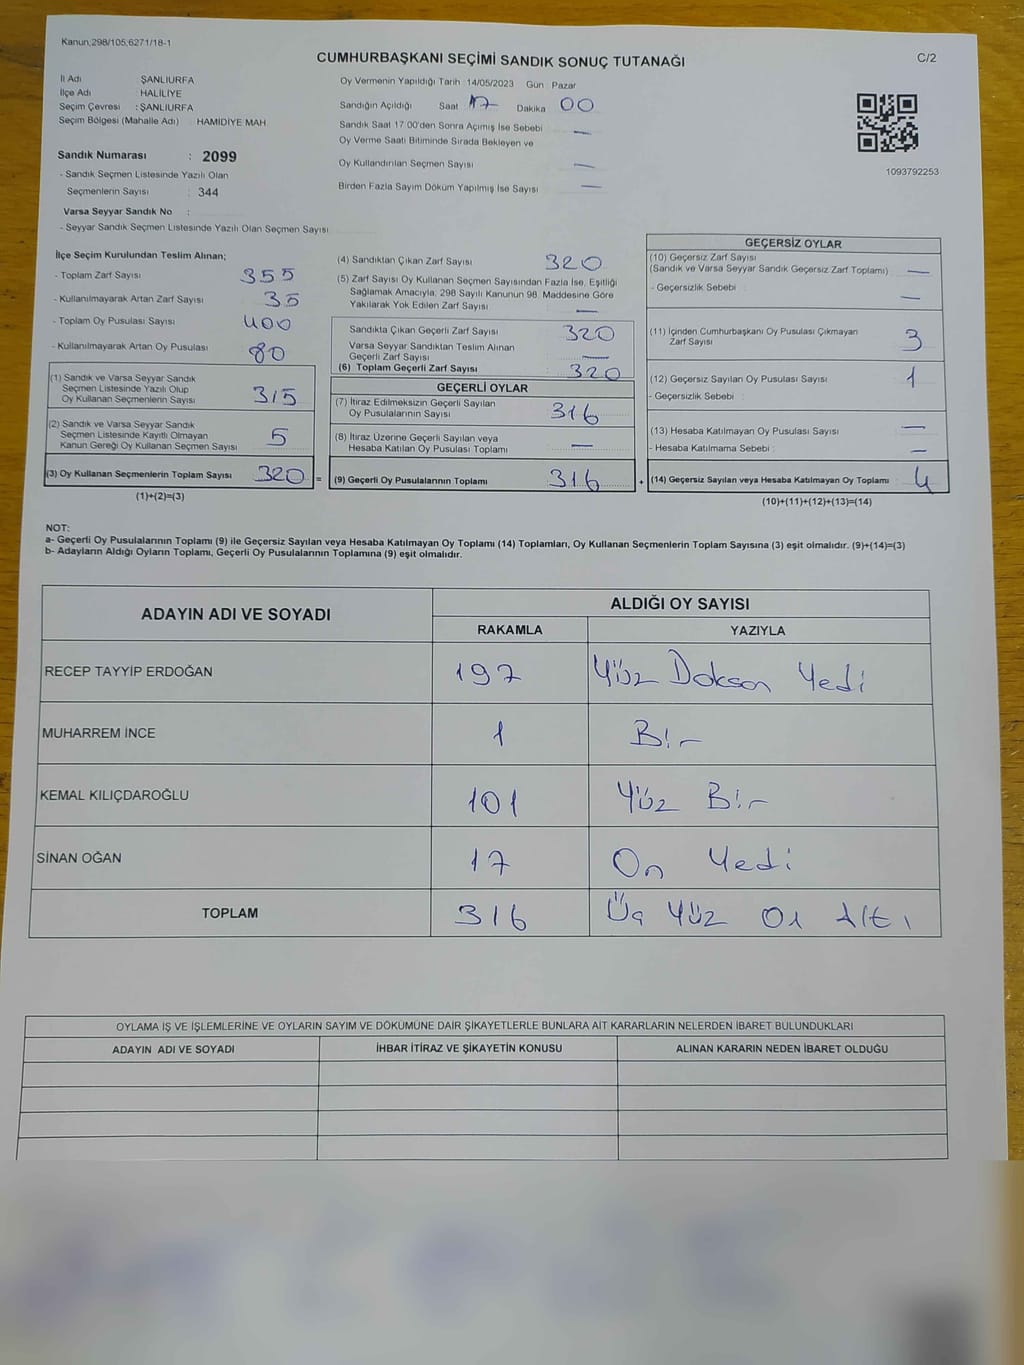 Kanun,298/105,6271/18-1
CUMHURBAŞKANI SEÇİMİ SANDIK SONUÇ TUTANAĞI
C/2
İl Adı ŞANLIURFA
İlçe Adı : HALİLİYE
Seçim Çevresi : ŞANLIURFA
Seçim Bölgesi (Mahalle Adı) : HAMİDİYE MAH
Sandık Numarası : 2099
- Sandık Seçmen Listesinde Yazılı Olan
Seçmenlerin Sayısı : 344
Varsa Seyyar Sandık No :
- Seyyar Sandık Seçmen Listesinde Yazılı Olan Seçmen Sayısı
Oy Vermenin Yapıldığı Tarih 14/05/2023 Gün Pazar
Sandığın Açıldığı Saat 17 Dakika 00
Sandık Saat 17:00'den Sonra Açımış İse Sebebi —
Oy Verme Saati Bitiminde Sırada Bekleyen ve
Oy Kullandırılan Seçmen Sayısı —
Birden Fazla Sayım Döküm Yapılmış İse Sayısı —
1093792253
İlçe Seçim Kurulundan Teslim Alınan;
- Toplam Zarf Sayısı 355
- Kullanılmayarak Artan Zarf Sayısı 35
- Toplam Oy Pusulası Sayısı 400
- Kullanılmayarak Artan Oy Pusulası 80
(1) Sandık ve Varsa Seyyar Sandık
Seçmen Listesinde Yazılı Olup
Oy Kullanan Seçmenlerin Sayısı 315
(2) Sandık ve Varsa Seyyar Sandık
Seçmen Listesinde Kayıtlı Olmayan
Kanun Gereği Oy Kullanan Seçmen Sayısı 5
(3) Oy Kullanan Seçmenlerin Toplam Sayısı 320 =
(1)+(2)=(3)
(4) Sandıktan Çıkan Zarf Sayısı 320
(5) Zarf Sayısı Oy Kullanan Seçmen Sayısından Fazla İse, Eşitliği
Sağlamak Amacıyla, 298 Sayılı Kanunun 98. Maddesine Göre
Yakılarak Yok Edilen Zarf Sayısı —
Sandıkta Çıkan Geçerli Zarf Sayısı 320
Varsa Seyyar Sandıktan Teslim Alınan
Geçerli Zarf Sayısı —
(6) Toplam Geçerli Zarf Sayısı : 320
GEÇERLİ OYLAR
(7) İtiraz Edilmeksizin Geçerli Sayılan
Oy Pusulalarının Sayısı 316
(8) İtiraz Üzerine Geçerli Sayılan veya
Hesaba Katılan Oy Pusulası Toplamı —
(9) Geçerli Oy Pusulalarının Toplamı 316 +
GEÇERSİZ OYLAR
(10) Geçersiz Zarf Sayısı
(Sandık ve Varsa Seyyar Sandık Geçersiz Zarf Toplamı) —
- Geçersizlik Sebebi : —
(11) İçinden Cumhurbaşkanı Oy Pusulası Çıkmayan
Zarf Sayısı 3
(12) Geçersiz Sayılan Oy Pusulası Sayısı 1
- Geçersizlik Sebebi :
(13) Hesaba Katılmayan Oy Pusulası Sayısı —
- Hesaba Katılmama Sebebi : —
(14) Geçersiz Sayılan veya Hesaba Katılmayan Oy Toplamı : 4
(10)+(11)+(12)+(13)=(14)
NOT:
a- Geçerli Oy Pusulalarının Toplamı (9) ile Geçersiz Sayılan veya Hesaba Katılmayan Oy Toplamı (14) Toplamları, Oy Kullanan Seçmenlerin Toplam Sayısına (3) eşit olmalıdır. (9)+(14)=(3)
b- Adayların Aldığı Oyların Toplamı, Geçerli Oy Pusulalarının Toplamına (9) eşit olmalıdır.
ADAYIN ADI VE SOYADI ALDIĞI OY SAYISI
RAKAMLA YAZIYLA
RECEP TAYYİP ERDOĞAN 197 Yüz Doksan Yedi
MUHARREM İNCE 1 Bir
KEMAL KILIÇDAROĞLU 101 Yüz Bir
SİNAN OĞAN 17 On Yedi
TOPLAM 316 Üç Yüz On Altı
OYLAMA İŞ VE İŞLEMLERİNE VE OYLARIN SAYIM VE DÖKÜMÜNE DAİR ŞİKAYETLERLE BUNLARA AİT KARARLARIN NELERDEN İBARET BULUNDUKLARI
ADAYIN ADI VE SOYADI İHBAR İTİRAZ VE ŞİKAYETİN KONUSU ALINAN KARARIN NEDEN İBARET OLDUĞU